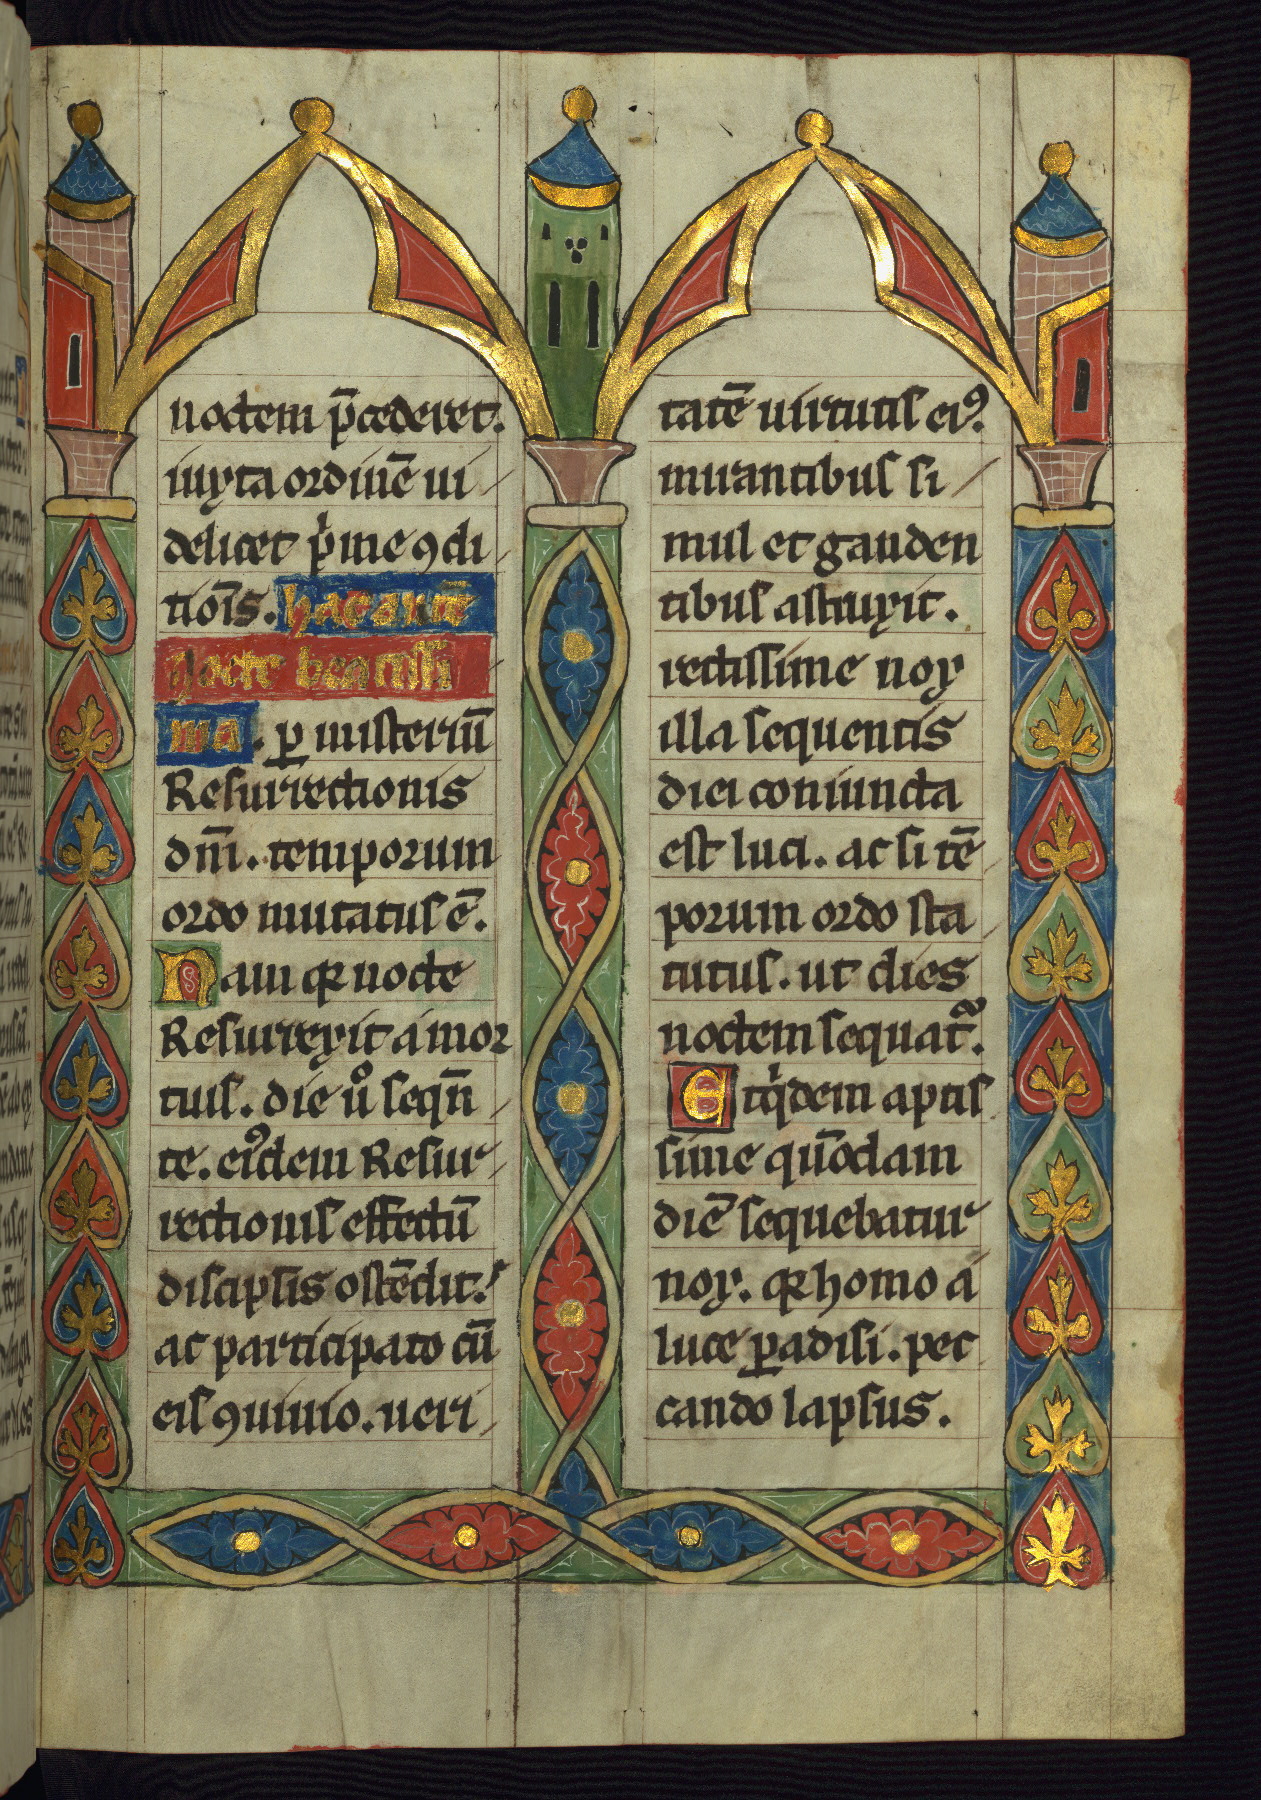 7
noctem p̄cederet.
iuxta ordinē ui
delicet p̍me ꝯdi
tiois̄. hac aut̄
nocte beatissi
ma. ꝑ misteriū
Resurrectionis
dn̄i. temporum
ordo mutatus ē.
Nam qꝛ nocte
Resurrexit a mor
tuis. die u̾o seqn̄
te. eiꝰdem Resur
rectionis effectū
discipl̄is ostēdit.
ac participato cū
eis ꝯuiuio. ueri
tatē uirtutis eiꝰ.
mirantibus si
mul et gauden
tibus astruxit.
rectissime nox
illa sequentis
diei coniuncta
est luci. ac si tē
porum ordo sta
tutus. ut dies
noctem sequat᷑.
Et q̍dem aptis
sime quōdam
diē sequebatur
nox. qꝛ homo a
luce ꝑadisi. pec
cando lapsus.